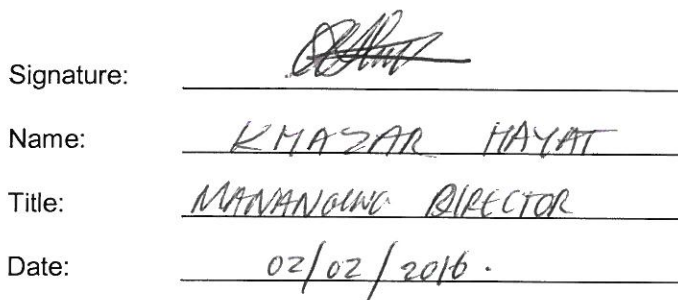 Signature:
Name: KHAZAR HAYAT
Title: MANANGING DIRECTOR
Date: 02/02/2016.